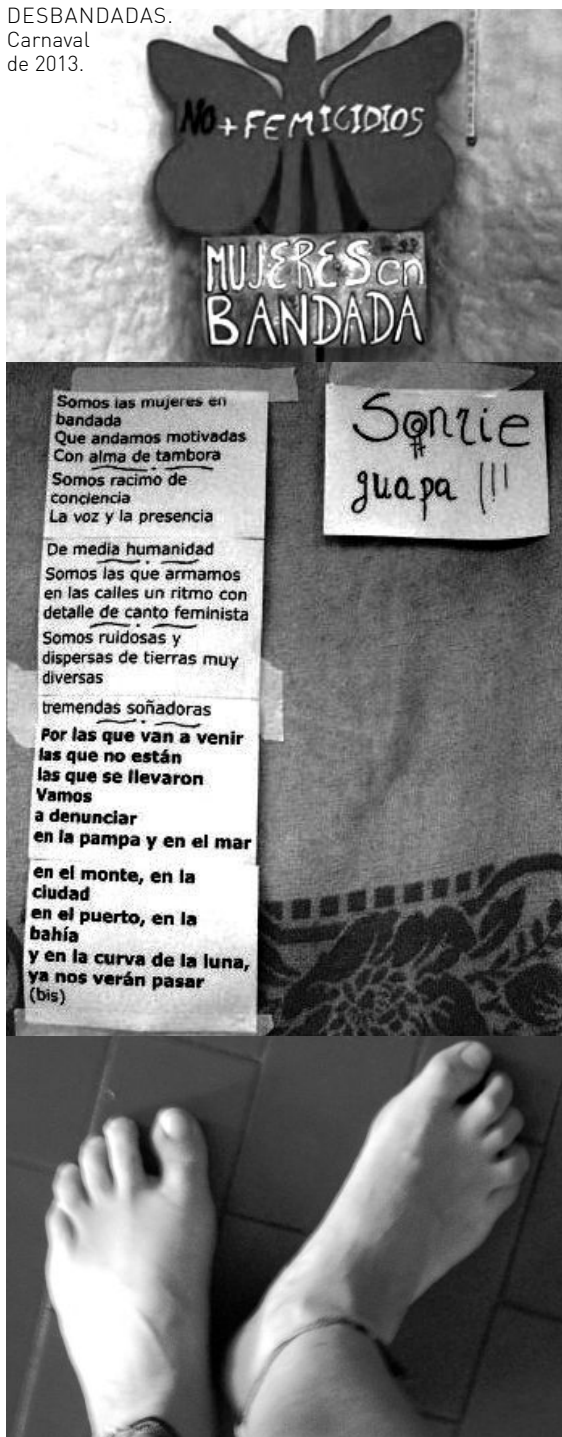 DESBANDADAS.
Carnaval
de 2013.
NO + FEMICIDIOS
MUJERES en
BANDADA
Somos las mujeres en
bandada
Que andamos motivadas
Con alma de tambora
Somos racimo de
conciencia
La voz y la presencia
De media humanidad
Somos las que armamos
en las calles un ritmo con
detalle de canto feminista
Somos ruidosas y
dispersas de tierras muy
diversas
tremendas soñadoras
Por las que van a venir
las que no están
las que se llevaron
Vamos
a denunciar
en la pampa y en el mar
en el monte, en la
ciudad
en el puerto, en la
bahía
y en la curva de la luna,
ya nos verán pasar
(bis)
Sonrie
guapa !!!